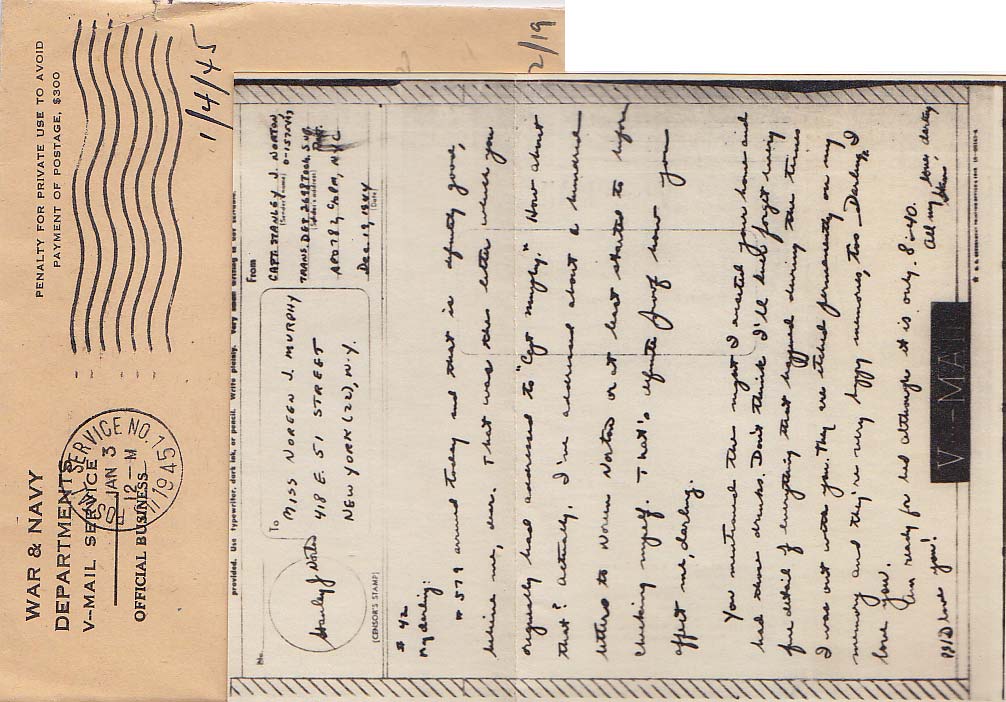 WAR & NAVY
DEPARTMENTS
V--MAIL SERVICE
OFFICIAL BUSINESS
PENALTY FOR PRIVATE USE TO AVOID
PAYMENT OF POSTAGE, $300
POSTAL SERVICE NO. 1
JAN 3
12-M
1945
1/4/45
2/19
No.
provided. Use typewriter, dark ink, or pencil. Write plainly. Very small writing is not suitable.
To
MISS NOREEN J. MURPHY
418 E. 51 STREET
NEW YORK (22), N.Y.
From
CAPT. STANLEY J. NORTON
(Sender's name)
TRANS. DEP
(Sender's address)
APO 782, C/O P.M., N.Y.C
Dec. 19, 1944
(Date)
Stanley J Norton
(CENSOR'S STAMP)
# 42
My darling:
# 579 arrived today and that is definitely good,
believe me, dear. That was the letter where you
originally had addressed to "Cpt Murphy." How about
that? Actually, I've addressed about a hundred
letters to Noreen Norton or at least started to before
checking myself. That's definite proof how you
affect me, darling.
You mentioned the night I visited your home and
had those drinks. Don't think I'll ever forget every
fine detail of everything that happened during the times
I was out with you. They are stored permanently in my
memory and they're very happy memories, too. Darling, I
love you.
I'm ready for bed although it is only 8:40.
All my love, darling
Stan.
PS/ I love you!
V--MAIL